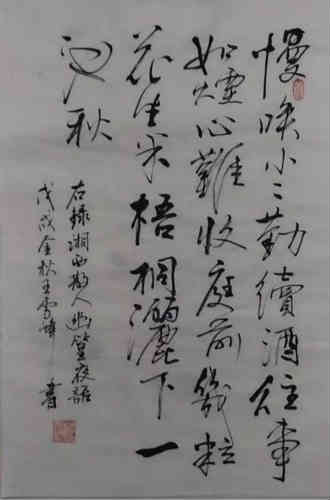 慢喚小二勤續酒往事
如煙心難收庭前幾粒
花生米梧桐灑下一
地秋
右錄湘西散人幽篁夜語
戊戌金秋王雪峰書